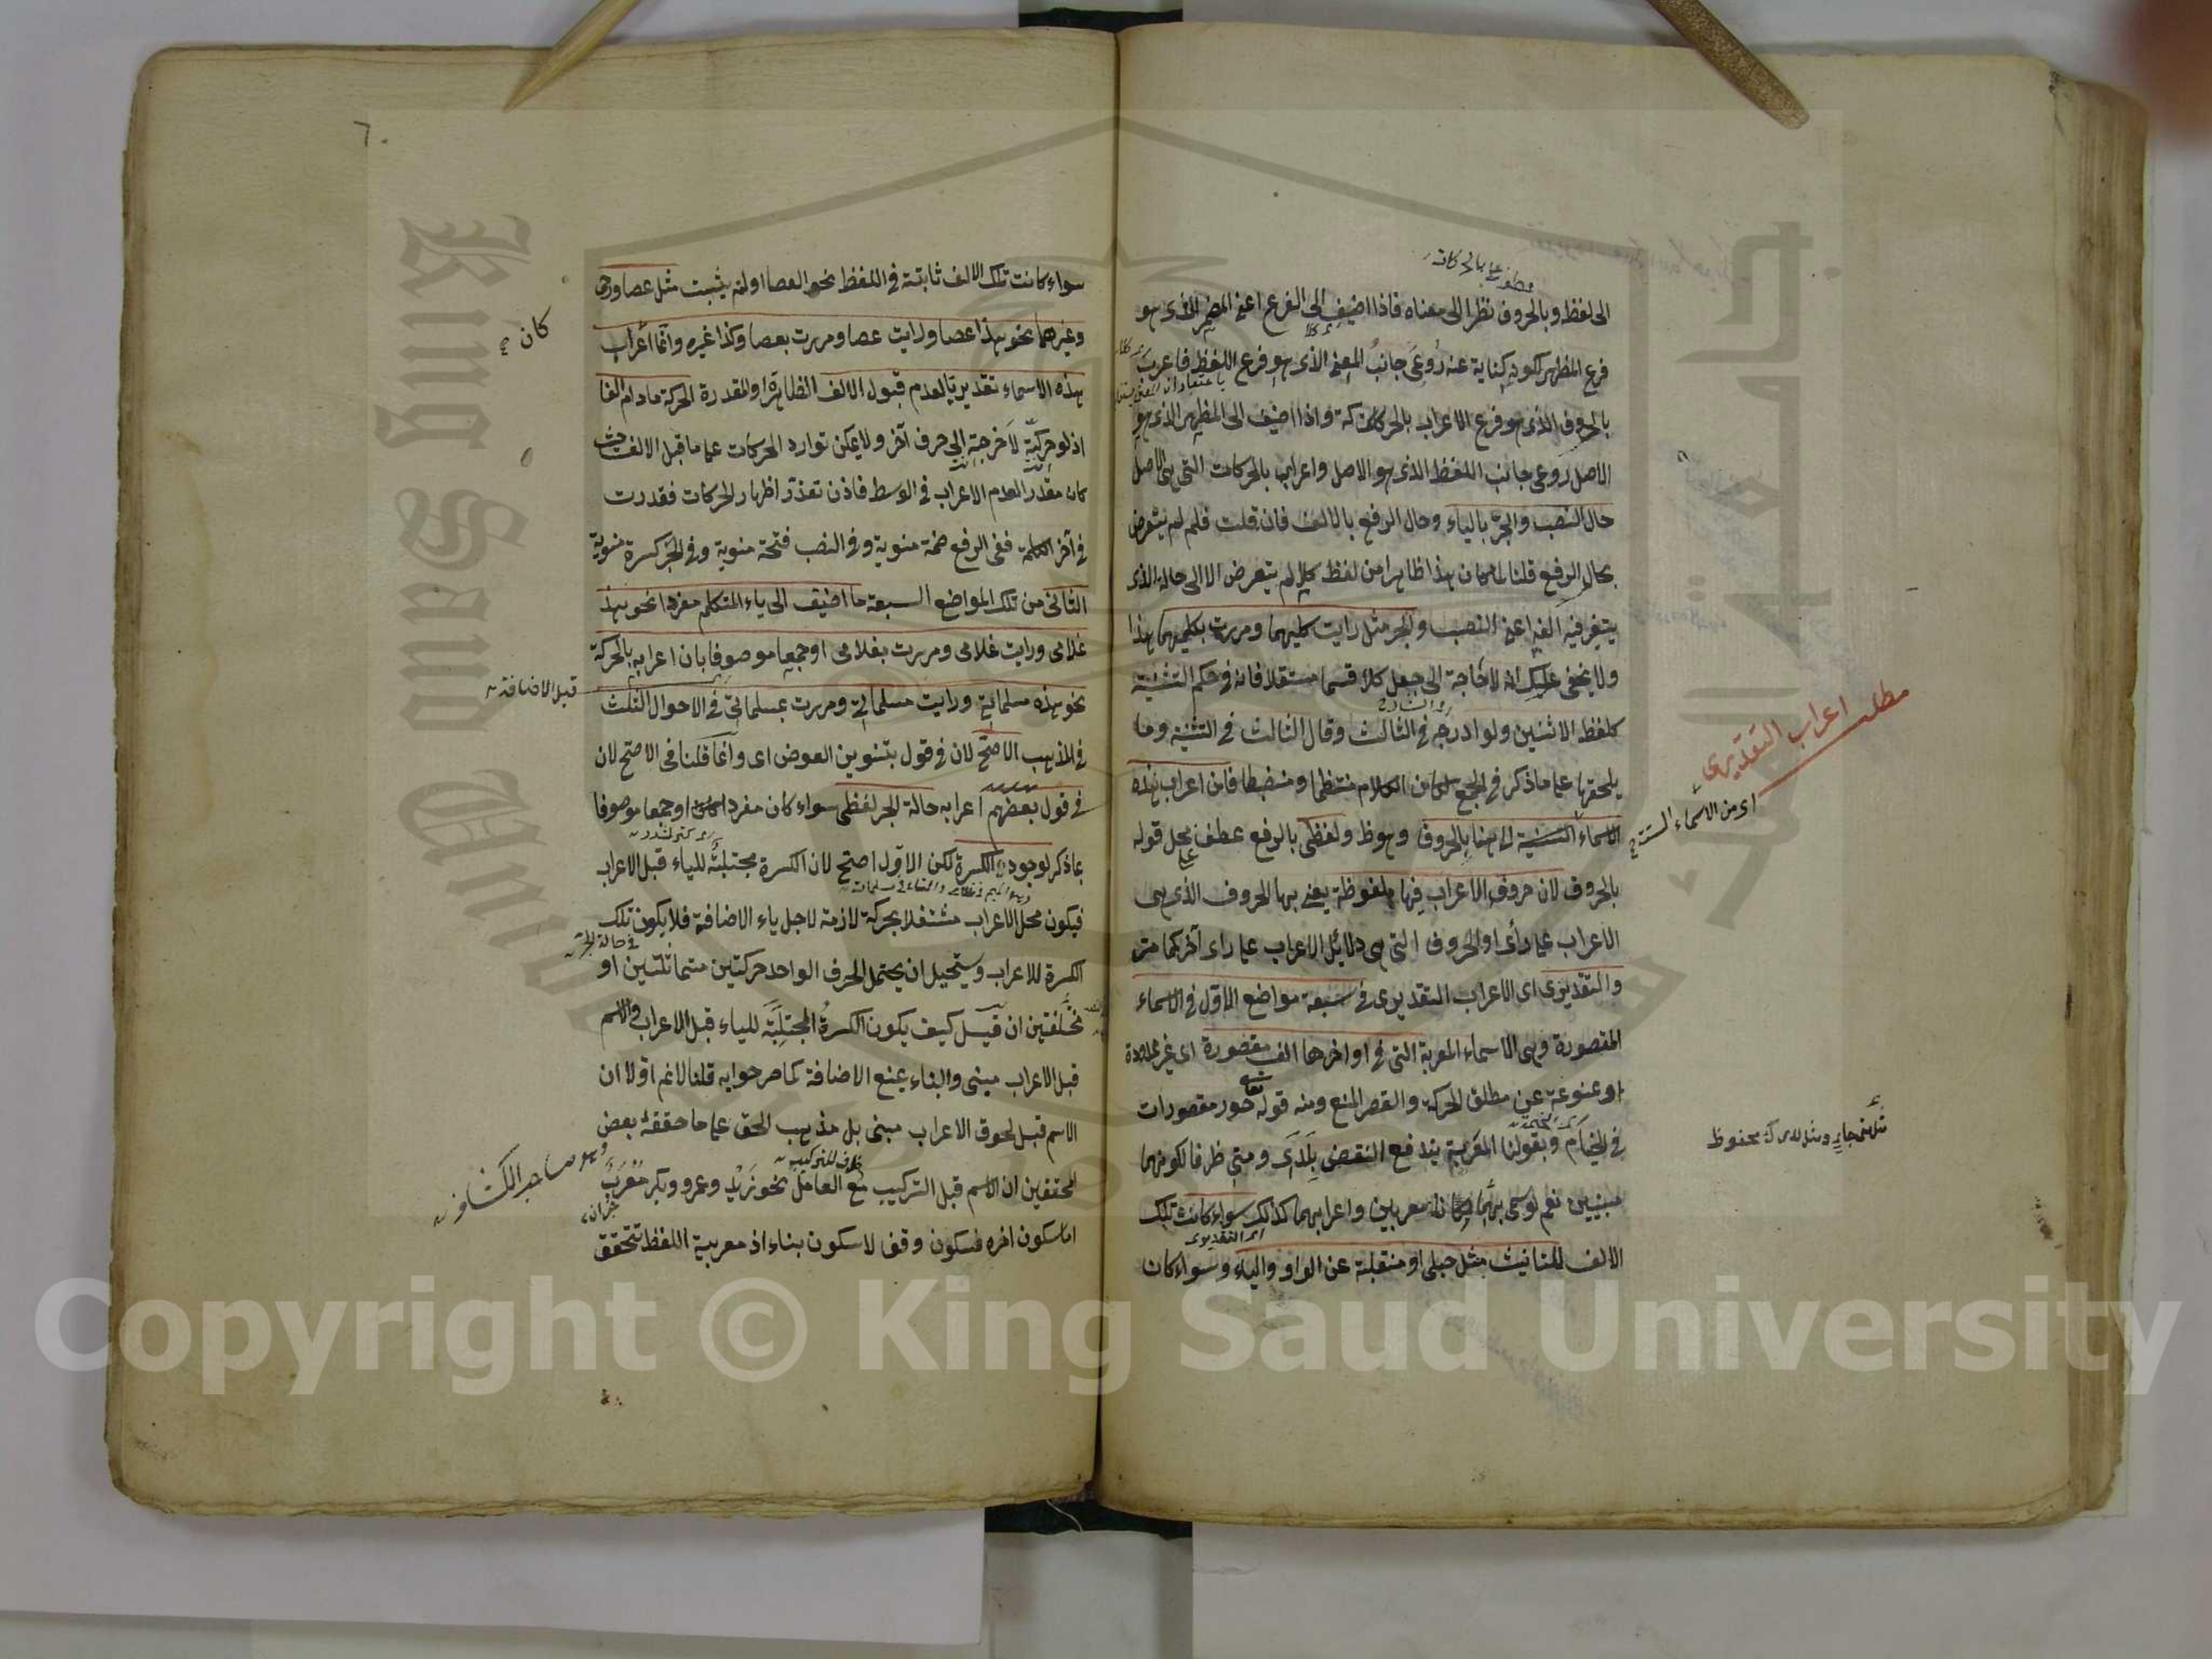 الى لفظ وبالحروف نظرا الى معناه فاذا اضيف الى الفرع اعنى المضمر الذى هو
فرع المظهر لكونه كناية عنه روعى جانب المعنى الذى هو فرع اللفظ فاعرب
بالحروف الذى هو فرع الاعراب بالحركات واذا اضيف الى المظهر الذى هو
الاصل روعى جانب اللفظ الذى هو الاصل واعرب بالحركات التى هى الاصل
حال النصب والجر بالياء وحال الرفع بالالف فان قلت فلم لم يتعرض
بحال الرفع قلنا لما كان هذا ظاهرا من لفظ كلا لم يتعرض الا الى حالة الذى
يتغير فيه الفه اعنى النصب والجر مثل رايت كليهما ومررت بكليهما هذا
ولا يخفى عليك انه لا حاجة الى جعل كلا قسما مستقلا فانه فى حكم التثنية
كلفظ الاثنين ولو ادرجه فى الثالث وقال الثالث فى التثنية وما
يلحقها على ما ذكر فى الجمع لكان الكلام منتظما ومنضبطا فان اعراب هذه
الاسماء الستة الى هنا بالحروف وهو ظ ولفظى بالرفع عطف على محل قوله
بالحروف لان حروف الاعراب فيها ملفوظة يعنى بها الحروف الذى هى
الاعراب على رأى او الحروف التى هى دلائل الاعراب على راى آخر كما مر
والتقديرى اى الاعراب التقديرى فى سبعة مواضع الاول فى الاسماء
المقصورة وهى الاسماء المعربة التى فى اواخرها الف مقصورة اى غير ممدودة
او ممنوعة عن مطلق الحركة والقصر المنع ومنه قوله تعالى حور مقصورات
فى الخيام وبقولنا المعربة يندفع النقض بلدى ومتى ظرفا لكونهما
مبنيين نعم لو سمى بهما كانا معربين واعرابهما كذلك سواء كانت تلك
الالف للتانيث مثل حبلى او منقلبة عن الواو والياء وسواء كان
معطوف على بالحركات
مطلب اعراب التقديرى
اى من الاسماء الستة
اى التقديرى
٦٠
سواء كانت تلك الالف ثابتة فى اللفظ نحو العصا او لم يثبت مثل عصا ورحى
وغيرهما نحو هذا عصا ورايت عصا ومررت بعصا وكذا غيره وانما اعراب
هذه الاسماء تقديريا لعدم قبول الالف الظاهرة او المقدرة الحركة مادام الفا
اذ لو حركت لاخرجت الى حرف آخر ولا يمكن توارد الحركات على ما قبل الالف حيث
كان مقدرا لعدم الاعراب فى الوسط فاذن تعذر اظهار الحركات فقدرت
فى آخر الكلمة ففى الرفع ضمة منوية وفى النصب فتحة منوية وفى الجر كسرة منوية
الثانى من تلك المواضع السبعة ما اضيف الى ياء المتكلم مفردا نحو هذا
غلامى ورايت غلامى ومررت بغلامى او جمعا موصوفا بان اعرابه بالحركة
نحو هذه مسلماتى ورايت مسلماتى ومررت بمسلماتى فى الاحوال الثلث
فى المذهب الاصح لان فى قول بتنوين العوض اى وانما قلنا فى الاصح لان
فى قول بعضهم اعرابه حالة الجر لفظى سواء كان مفردا او جمعا موصوفا
بما ذكر لوجود الكسرة لكن الاول اصح لان الكسرة مجتلبة للياء قبل الاعراب
فيكون محل الاعراب مشتغلا بحركة لازمة لاجل ياء الاضافة فلا يكون تلك
الكسرة للاعراب ويستحيل ان يحتمل الحرف الواحد حركتين متماثلتين او
مختلفتين ان قيل كيف يكون الكسرة المجتلبة للياء قبل الاعراب والاسم
قبل الاعراب مبنى والبناء يمنع الاضافة كما مر جوابه قلنا لا نم اولا ان
الاسم قبل لحوق الاعراب مبنى بل مذهب الحق على ما حققه بعض
المحققين ان الاسم قبل التركيب مع العامل نحو زيد وعمرو وبكر معرب
اما سكون اخره فسكون وقف لا سكون بناء اذ معربية اللفظ تتحقق
كان
قبل الاضافة
فى حالة الجر
ظرف للتركيب
وهو صاحب الكشاف
King Saud University
Copyright © King Saud University